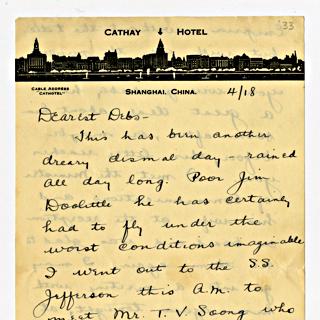 '33
CATHAY HOTEL
CABLE ADDRESS
"CATHOTEL"
SHANGHAI, CHINA.
4/18
Dearest Debs-
This has been another
dreary dismal day - rained
all day long. Poor Jim
Doolittle he has certainly
had to fly under the
worst conditions imaginable
I went out to the S.S.
Jefferson this A.M. to
meet Mr. T. V. Soong who